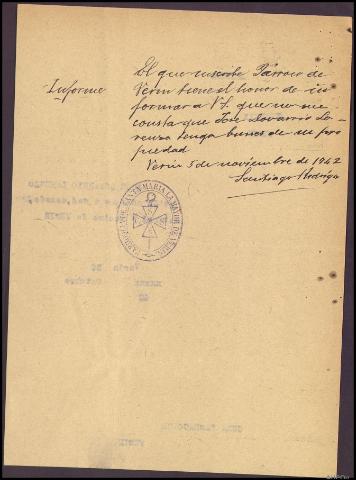 Informe
El que suscribe Párroco de
Verín tiene el honor de in
formar a V.S. que no me
consta que José Navarro Lo-
renzo tenga bienes de su pro
piedad
Verín 5 de noviembre de 1942
Santiago Rodrigo
PARROQUIA DE SANTA MARIA LA MAYOR DE VERIN